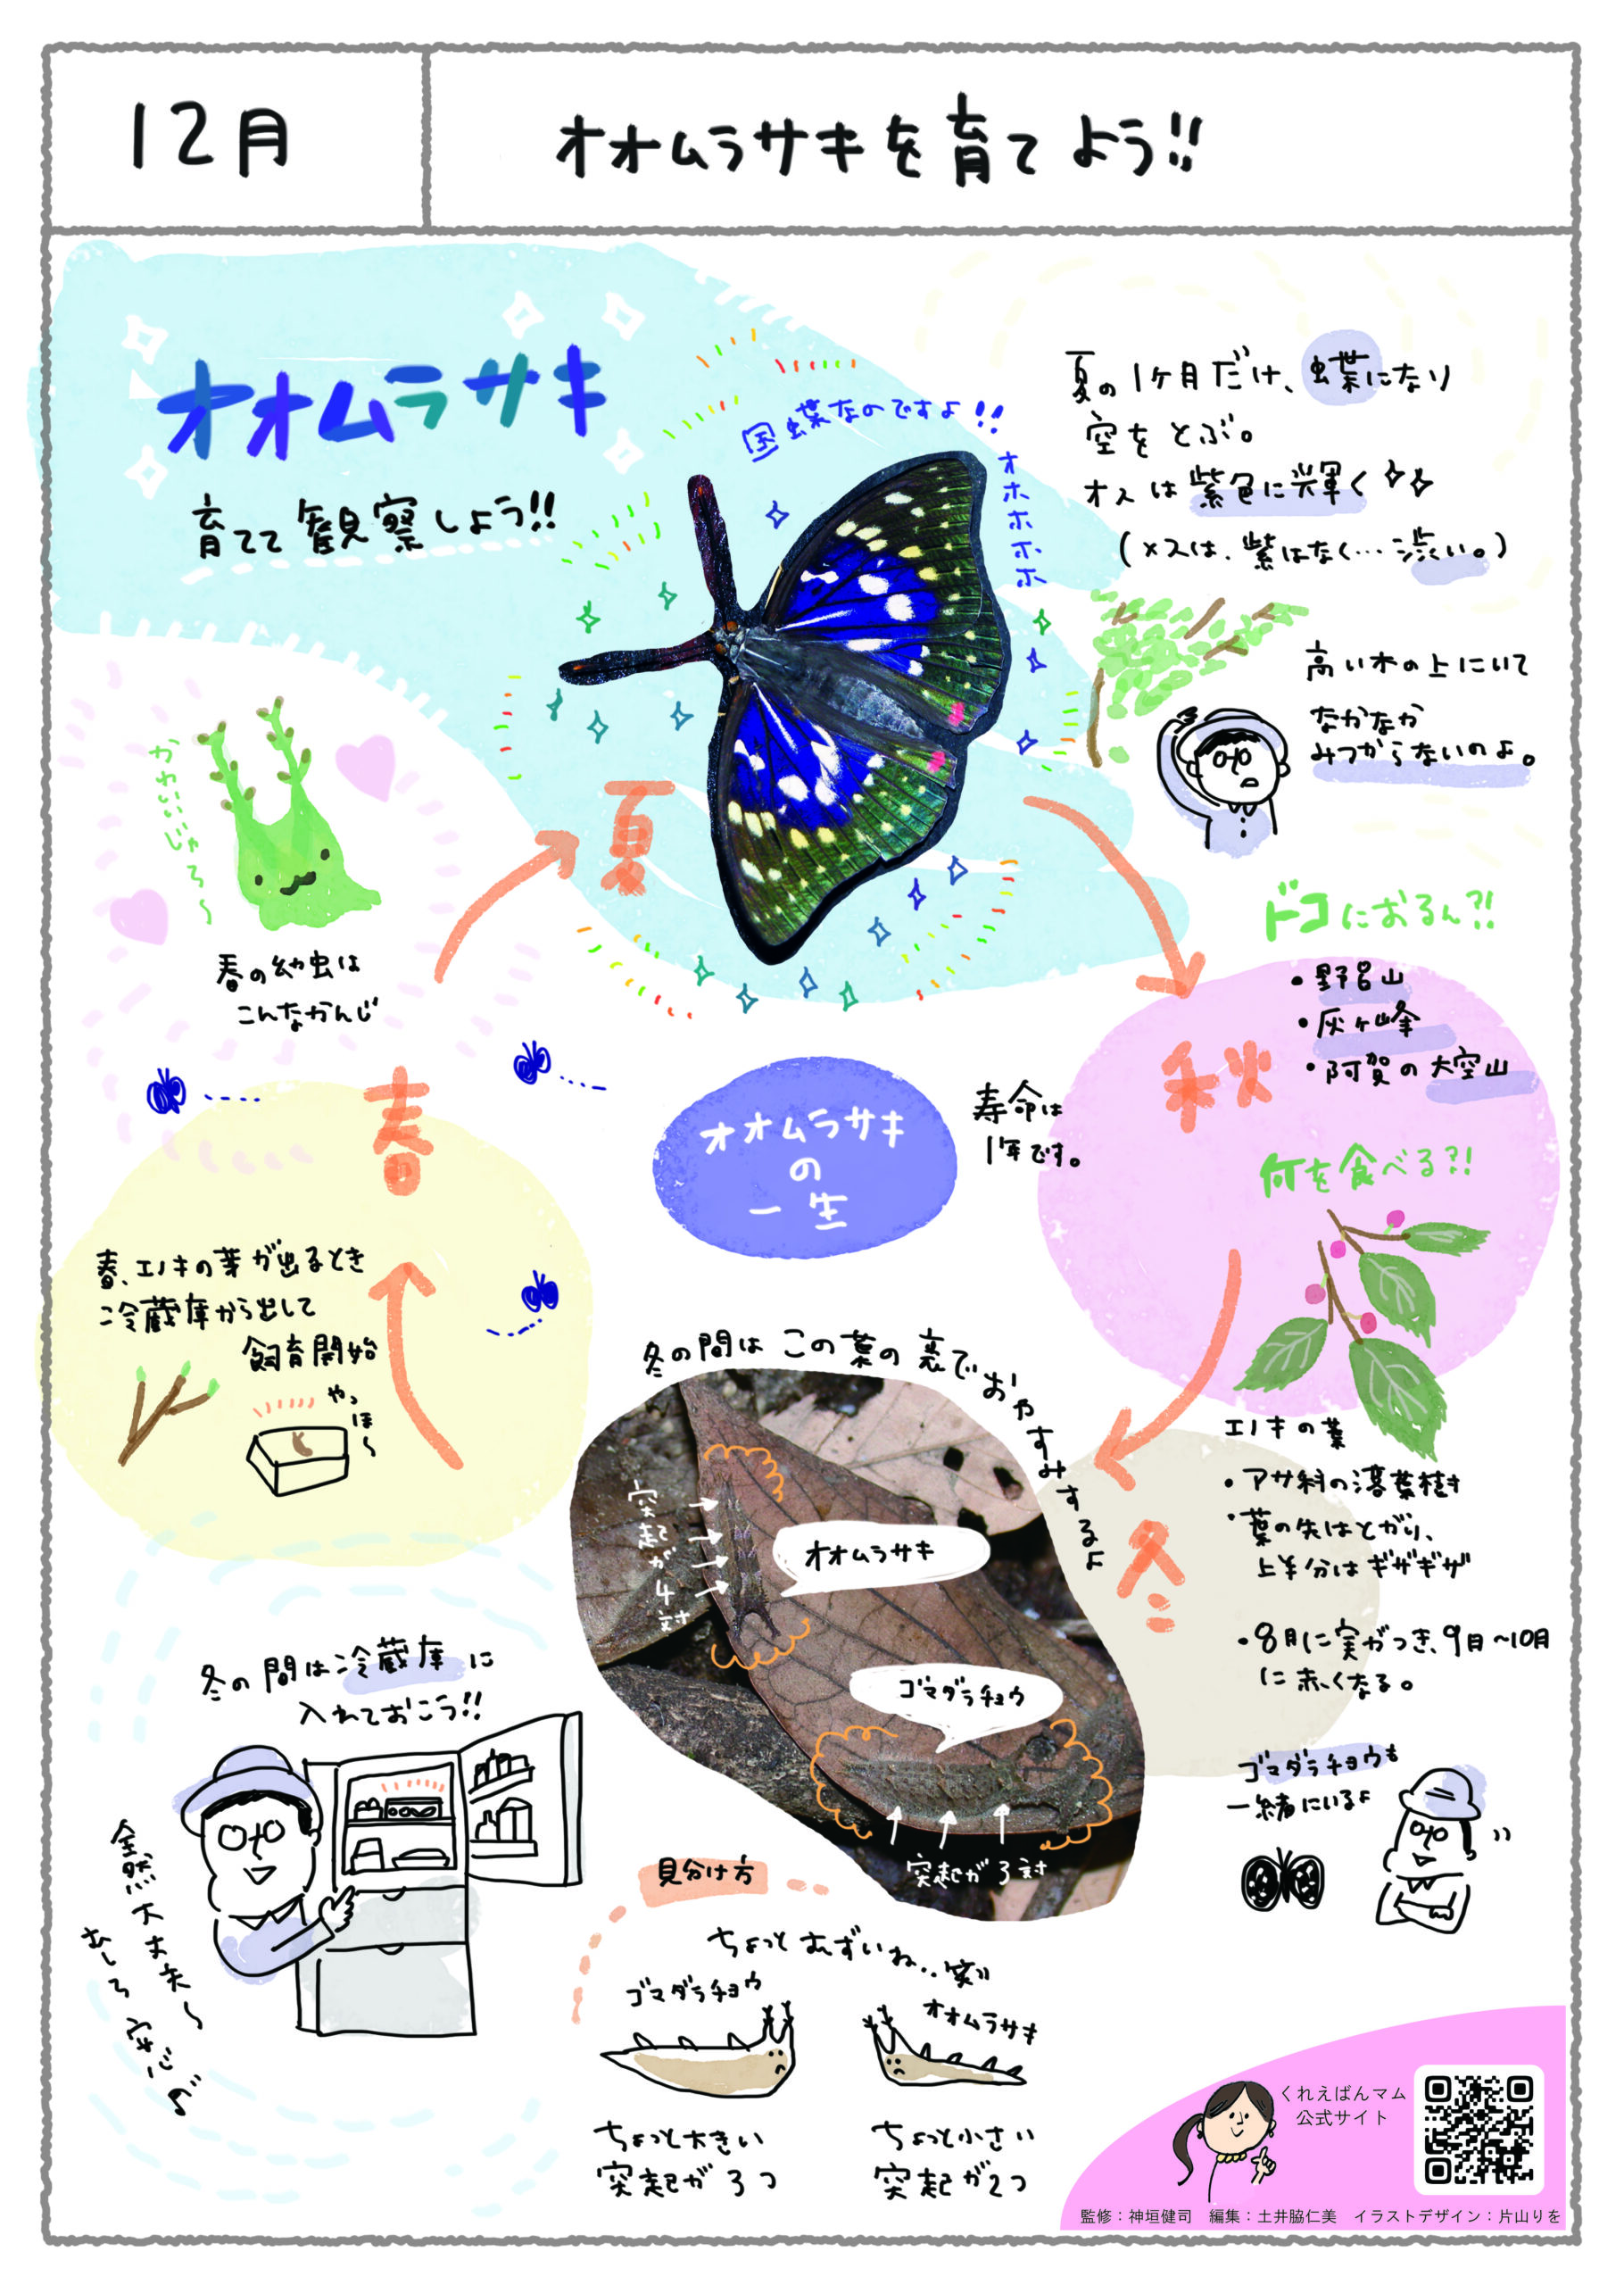 12月
オオムラサキを育てよう!!
オオムラサキ
育てて観察しよう!!
国蝶なのですよ!!
オホホホホ
夏の1ヶ月だけ、蝶になり
空をとぶ。
オスは紫色に光輝く
(メスは、紫はなく…渋い。)
高い木の上にいて
なかなか
みつからないのよ。
かわいいじゃろ〜
春の幼虫は
こんなかんじ
夏
ドコにおるん?!
・野呂山
・灰ヶ峰
・阿賀の大空山
秋
何を食べる?!
オオムラサキ
の
一生
寿命は
1年です。
春
春、エノキの芽が出るとき
冷蔵庫から出して
飼育開始
やっほ〜
冬の間はこの葉の裏でおやすみするよ
突起が4対
オオムラサキ
ゴマダラチョウ
突起が3対
冬
エノキの葉
・アサ科の落葉樹
・葉の先はとがり、
上半分はギザギザ
・8月に実がつき、9月~10月
に赤くなる。
ゴマダラチョウも
一緒にいるよ
冬の間は冷蔵庫に
入れておこう!!
全然大丈夫〜
むしろ安心
見分け方
ちょっとむずいね..笑
ゴマダラチョウ
オオムラサキ
ちょっと大きい
突起が3つ
ちょっと小さい
突起が2つ
くれえばんマム
公式サイト
監修：神垣健司　編集：土井脇仁美　イラストデザイン：片山りを